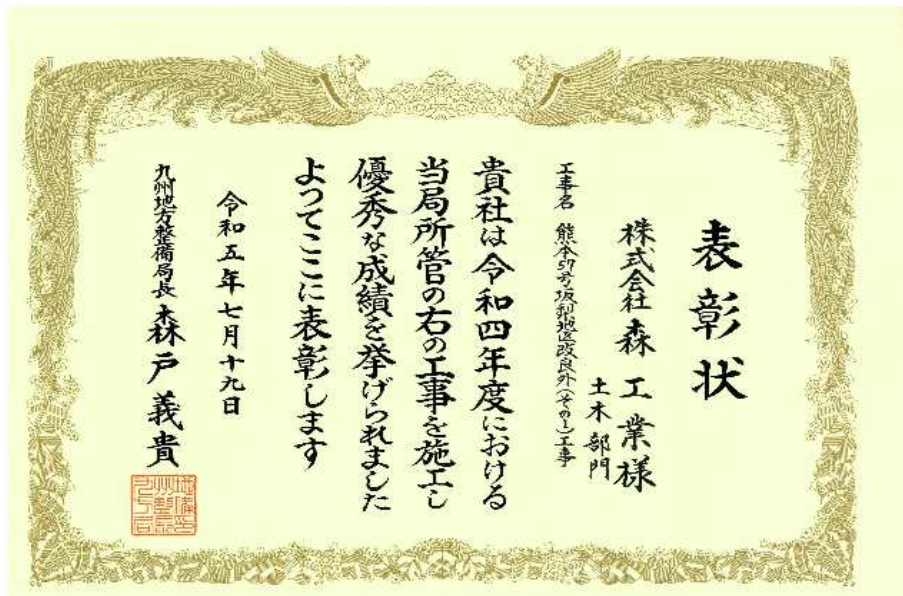 表彰状
株式会社 森工業様
土木部門
工事名 熊本57号坂梨地区改良外(その1)工事
貴社は令和四年度における
当局所管の右の工事を施工し
優秀な成績を挙げられました
よってここに表彰します
令和五年七月十九日
九州地方整備局長 森戸義貴